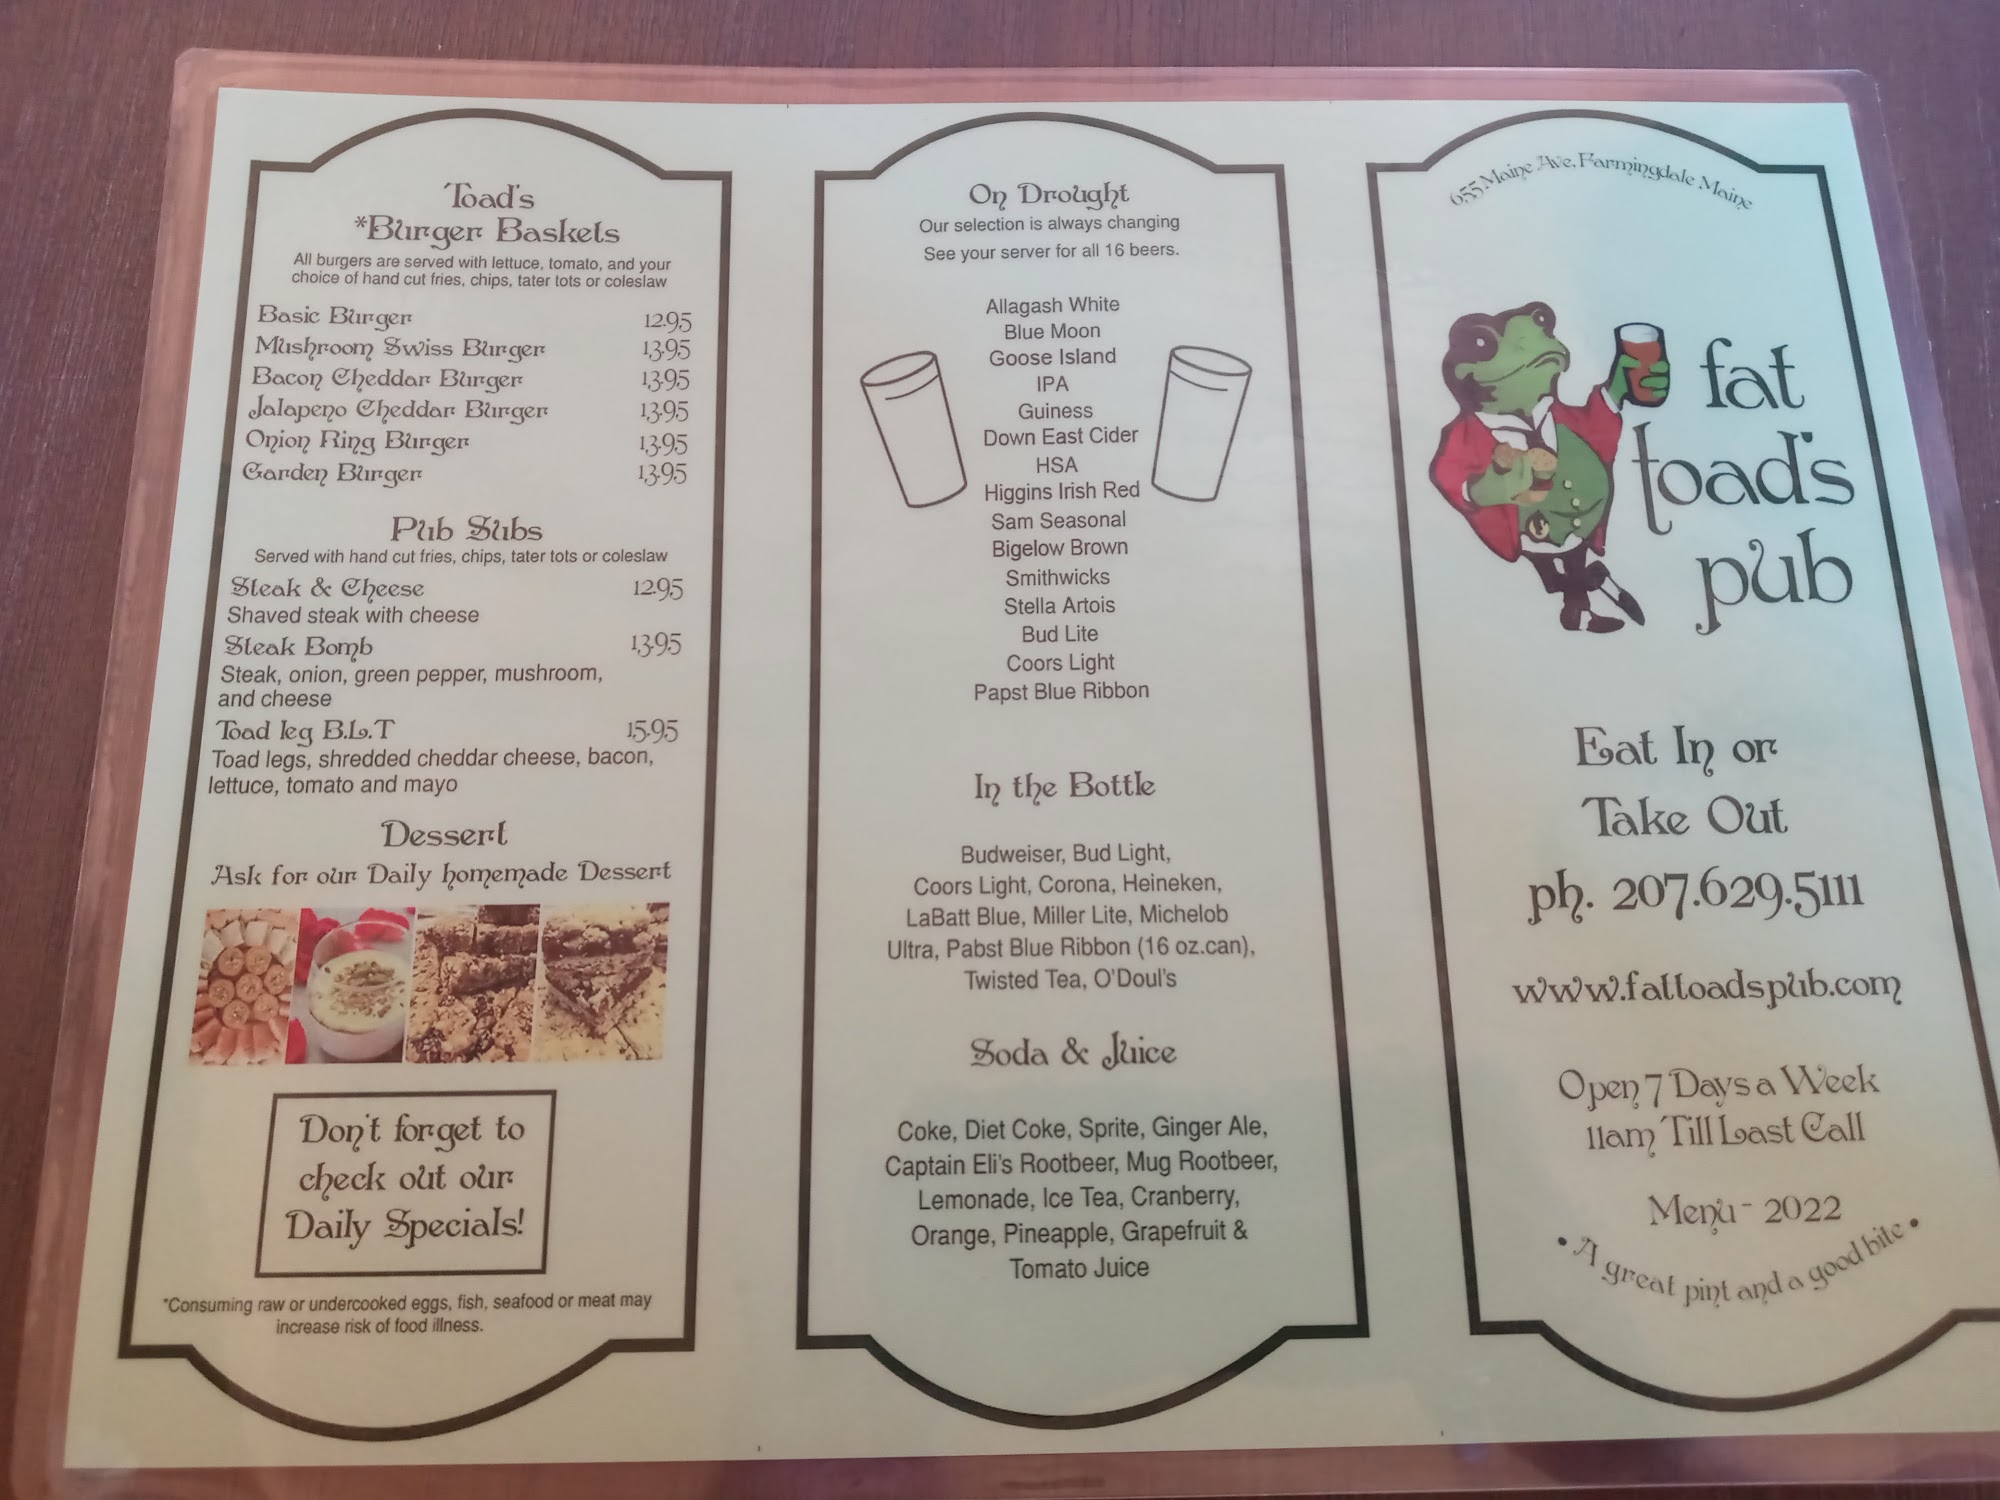 Toad's
*Burger Baskets
All burgers are served with lettuce, tomato, and your
choice of hand cut fries, chips, tater tots or coleslaw
Basic Burger 12.95
Mushroom Swiss Burger 13.95
Bacon Cheddar Burger 13.95
Jalapeno Cheddar Burger 13.95
Onion Ring Burger 13.95
Garden Burger 13.95
Pub Subs
Served with hand cut fries, chips, tater tots or coleslaw
Steak & Cheese 12.95
Shaved steak with cheese
Steak Bomb 13.95
Steak, onion, green pepper, mushroom,
and cheese
Toad leg B.L.T 15.95
Toad legs, shredded cheddar cheese, bacon,
lettuce, tomato and mayo
Dessert
Ask for our Daily homemade Dessert
Don't forget to
check out our
Daily Specials!
*Consuming raw or undercooked eggs, fish, seafood or meat may
increase risk of food illness.
On Drought
Our selection is always changing
See your server for all 16 beers.
Allagash White
Blue Moon
Goose Island
IPA
Guiness
Down East Cider
HSA
Higgins Irish Red
Sam Seasonal
Bigelow Brown
Smithwicks
Stella Artois
Bud Lite
Coors Light
Papst Blue Ribbon
In the Bottle
Budweiser, Bud Light,
Coors Light, Corona, Heineken,
LaBatt Blue, Miller Lite, Michelob
Ultra, Pabst Blue Ribbon (16 oz.can),
Twisted Tea, O'Doul's
Soda & Juice
Coke, Diet Coke, Sprite, Ginger Ale,
Captain Eli's Rootbeer, Mug Rootbeer,
Lemonade, Ice Tea, Cranberry,
Orange, Pineapple, Grapefruit &
Tomato Juice
655 Maine Ave, Farmingdale Maine
fat
toad's
pub
Eat In or
Take Out
ph. 207.629.5111
www.fattoadspub.com
Open 7 Days a Week
11am Till Last Call
Menu - 2022
• A great pint and a good bite •